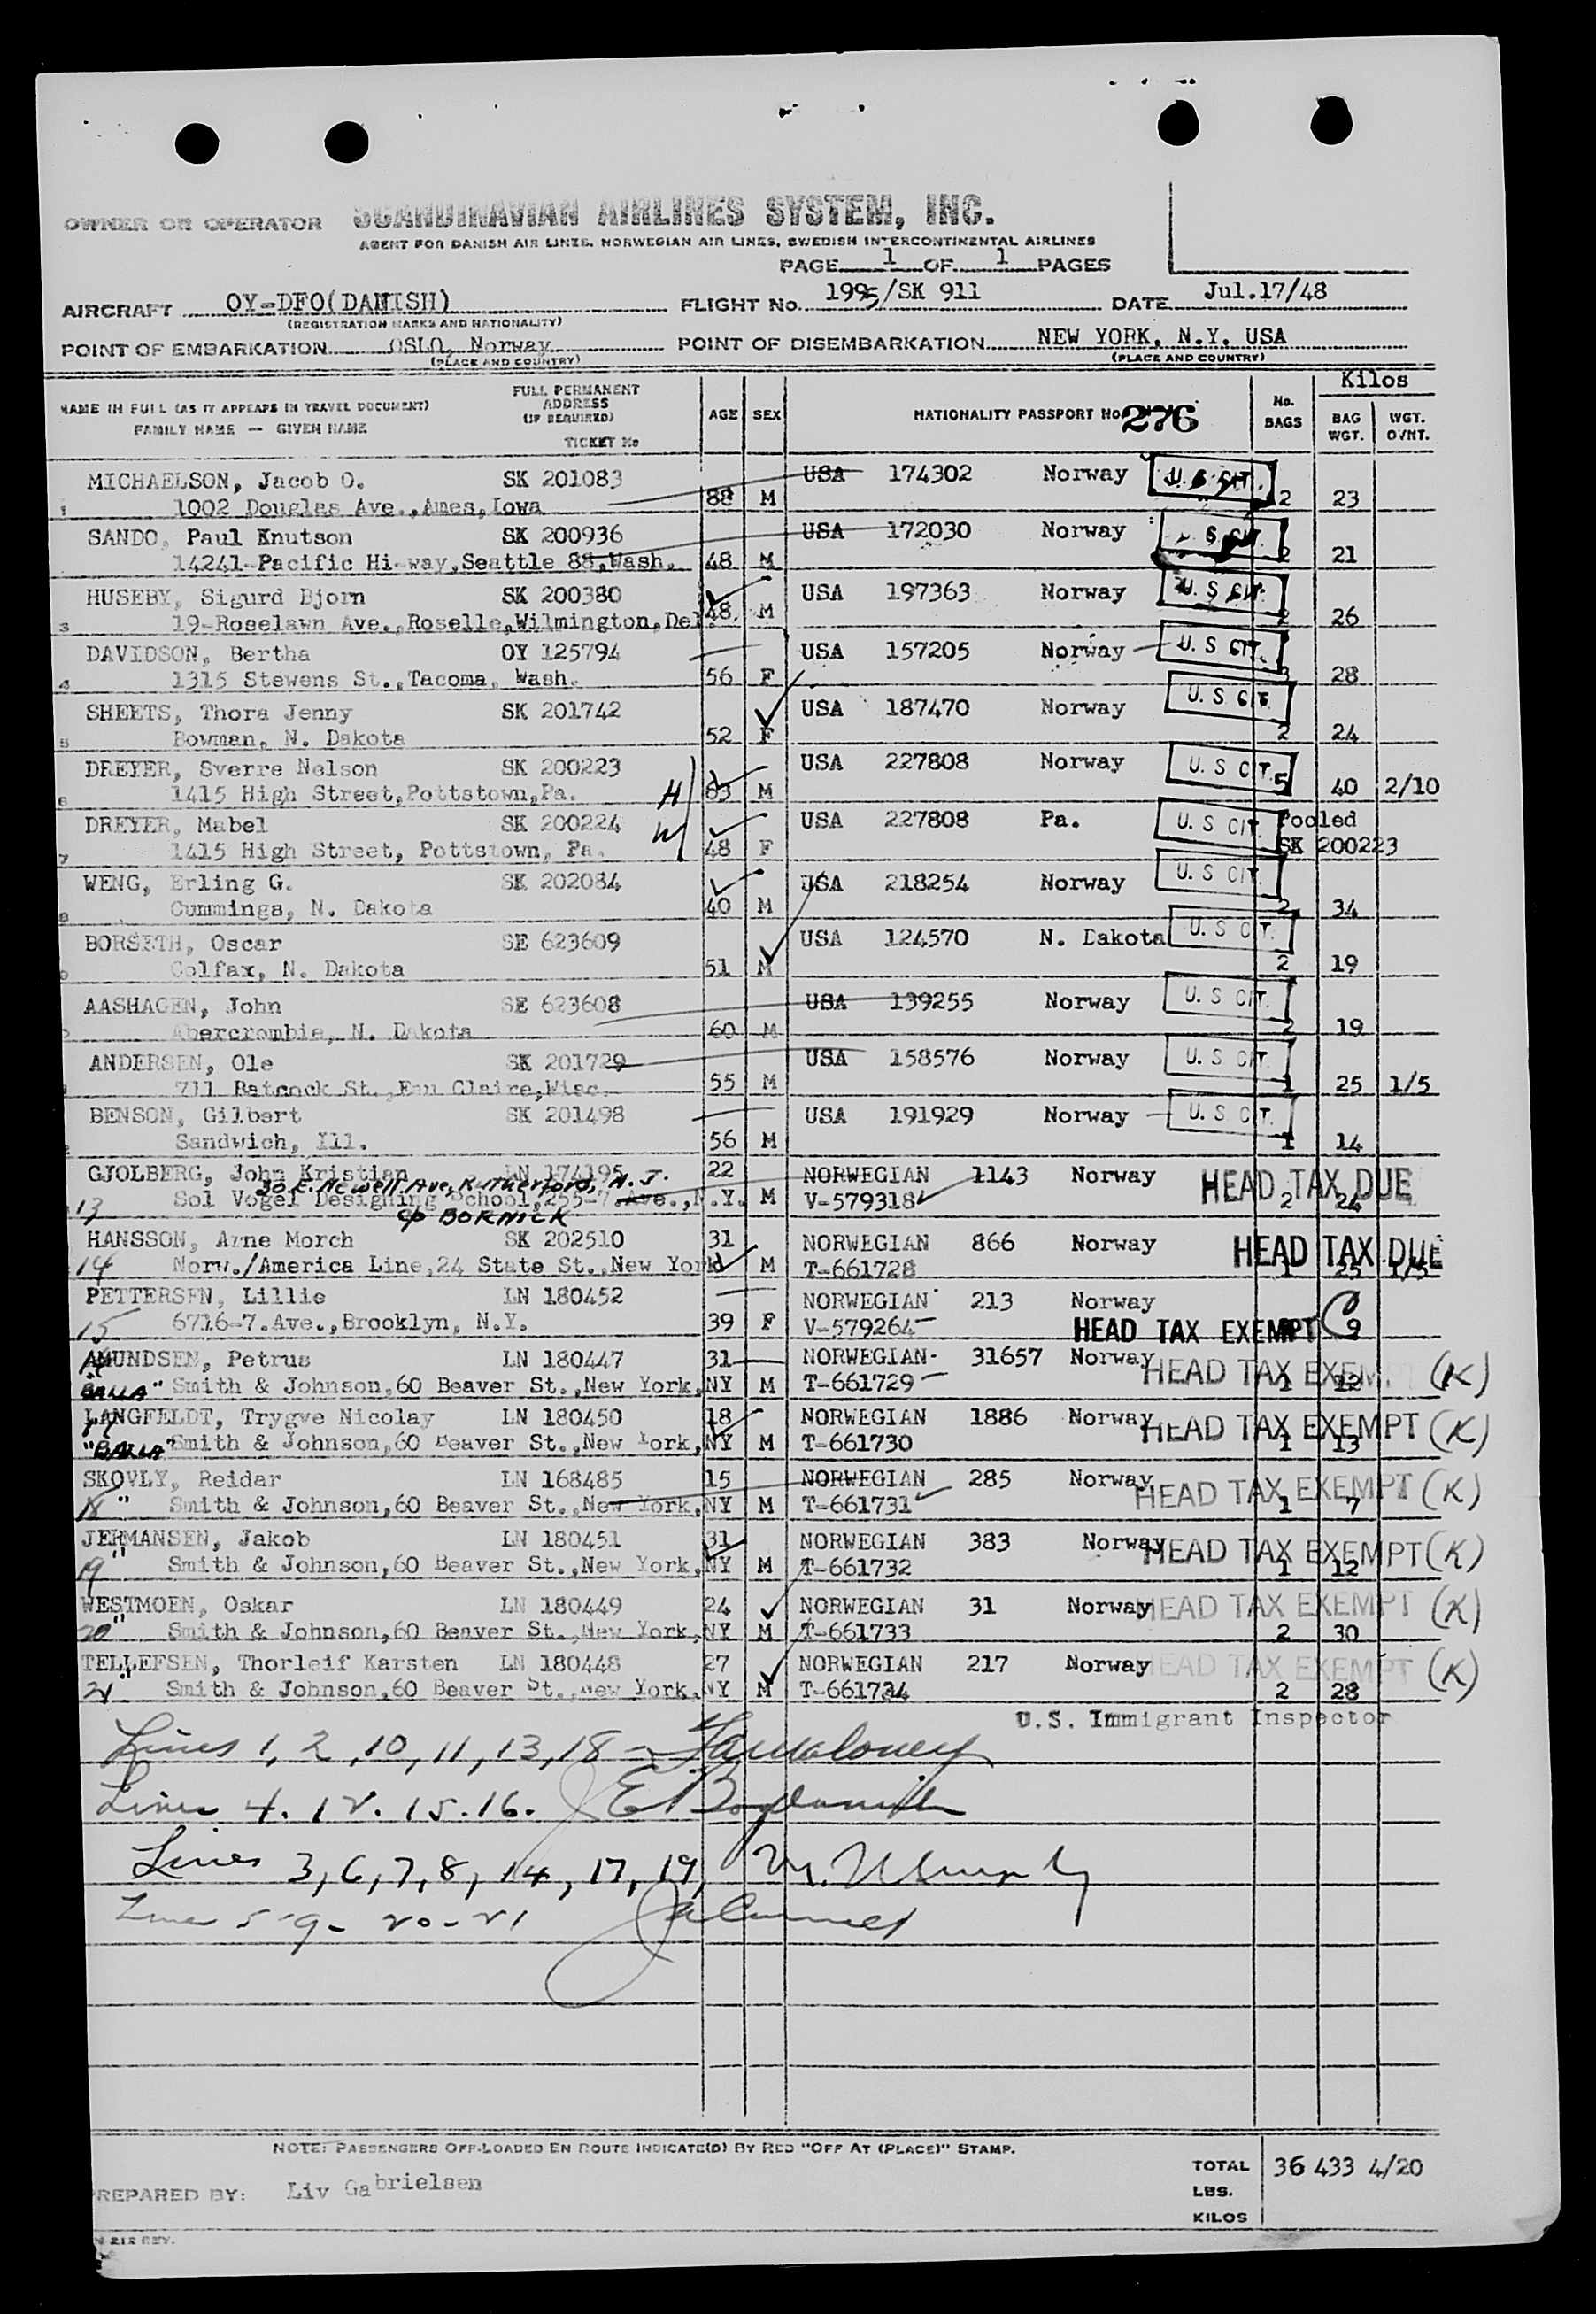 OWNER OR OPERATOR SCANDINAVIAN AIRLINES SYSTEM, INC.
AGENT FOR DANISH AIR LINES, NORWEGIAN AIR LINES, SWEDISH INTERCONTINENTAL AIRLINES
PAGE 1 OF 1 PAGES
AIRCRAFT OY-DFO(DANISH) FLIGHT No. 1995/SK 911 DATE Jul.17/48
(REGISTRATION MARKS AND NATIONALITY)
POINT OF EMBARKATION OSLO, Norway POINT OF DISEMBARKATION NEW YORK, N.Y. USA
(PLACE AND COUNTRY) (PLACE AND COUNTRY)
Kilos
NAME IN FULL (AS IT APPEARS IN TRAVEL DOCUMENT) FULL PERMANENT ADDRESS (IF REQUIRED) AGE SEX NATIONALITY PASSPORT No. 276 No. BAGS BAG WGT. WGT. OVHT.
FAMILY NAME — GIVEN NAME TICKET No
MICHAELSON, Jacob O. SK 201083 USA 174302 Norway U. S CIT.
1 1002 Douglas Ave.,Ames,Iowa 88 M 2 23
SANDO, Paul Knutson SK 200936 USA 172030 Norway U. S CIT.
14241-Pacific Hi-way,Seattle 88,Wash. 48 M 2 21
HUSEBY, Sigurd Bjorn SK 200380 USA 197363 Norway U. S CIT.
3 19-Roselawn Ave.,Roselle,Wilmington,Del. 48 M 2 26
DAVIDSON, Bertha OY 125794 USA 157205 Norway U. S CIT.
4 1315 Stewens St.,Tacoma, Wash. 56 F 28
SHEETS, Thora Jenny SK 201742 USA 187470 Norway U. S CIT.
5 Bowman, N. Dakota 52 F 2 24
DREYER, Sverre Nelson SK 200223 USA 227808 Norway U. S CIT.
6 1415 High Street,Pottstown,Pa. H 63 M 5 40 2/10
DREYER, Mabel SK 200224 USA 227808 Pa. U. S CIT. Pooled
7 1415 High Street, Pottstown, Pa. W 48 F SK 200223
WENG, Erling G. SK 202084 USA 218254 Norway U. S CIT.
8 Cummings, N. Dakota 40 M 2 34
BORSETH, Oscar SE 623609 USA 124570 N. Dakota U. S CIT.
9 Colfax, N. Dakota 51 M 2 19
AASHAGEN, John SE 623608 USA 139255 Norway U. S CIT.
Abercrombie, N. Dakota 60 M 2 19
ANDERSEN, Ole SK 201729 USA 158576 Norway U. S CIT.
711 Batcock St.,Eau Claire,Wisc. 55 M 1 25 1/5
BENSON, Gilbert SK 201498 USA 191929 Norway U. S CIT.
Sandwich, Ill. 56 M 1 14
GJOLBERG, John Kristian LN 174195 22 NORWEGIAN 1143 Norway HEAD TAX DUE
30 E. Newell Ave, Rutherford, N. J.
13 Sol Vogel Designing School,255-7.Ave.,N.Y. M V-579318 2 24
c/o BORNICK
HANSSON, Arne Morch SK 202510 31 NORWEGIAN 866 Norway HEAD TAX DUE
14 Norw./America Line,24 State St.,New York M T-661728 1 25 1/5
PETTERSEN, Lillie LN 180452 NORWEGIAN 213 Norway
15 6716-7.Ave.,Brooklyn, N.Y. 39 F V-579264 HEAD TAX EXEMPT 9
AMUNDSEN, Petrus LN 180447 31 NORWEGIAN 31657 Norway HEAD TAX EXEM (K)
"BALLA" Smith & Johnson,60 Beaver St.,New York,NY M T-661729 1 12
LANGFELDT, Trygve Nicolay LN 180450 18 NORWEGIAN 1886 Norway HEAD TAX EXEMPT (K)
"BALLA" Smith & Johnson,60 Beaver St.,New York,NY M T-661730 1 13
SKOVLY, Reidar LN 168485 15 NORWEGIAN 285 Norway HEAD TAX EXEMPT (K)
18 " Smith & Johnson,60 Beaver St.,New York,NY M T-661731 1 7
JERMANSEN, Jakob LN 180451 31 NORWEGIAN 383 Norway HEAD TAX EXEMPT (K)
19 " Smith & Johnson,60 Beaver St.,New York,NY M T-661732 1 12
WESTMOEN, Oskar LN 180449 24 NORWEGIAN 31 Norway HEAD TAX EXEMPT (K)
20 " Smith & Johnson,60 Beaver St.,New York,NY M T-661733 2 30
TELLEFSEN, Thorleif Karsten LN 180448 27 NORWEGIAN 217 Norway HEAD TAX EXEMPT (K)
21 " Smith & Johnson,60 Beaver St.,New York,NY M T-661734 2 28
U.S. Immigrant Inspector
Lines 1, 2, 10, 11, 13, 18 -
Lines 4. 12. 15. 16.
Lines 3, 6, 7, 8, 14, 17, 19, M. Murphy
Lines 5-9- 20-21
NOTE: PASSENGERS OFF-LOADED EN ROUTE INDICATE(D) BY RED "OFF AT (PLACE)" STAMP.
TOTAL 36 433 4/20
PREPARED BY: Liv Gabrielsen LBS.
KILOS